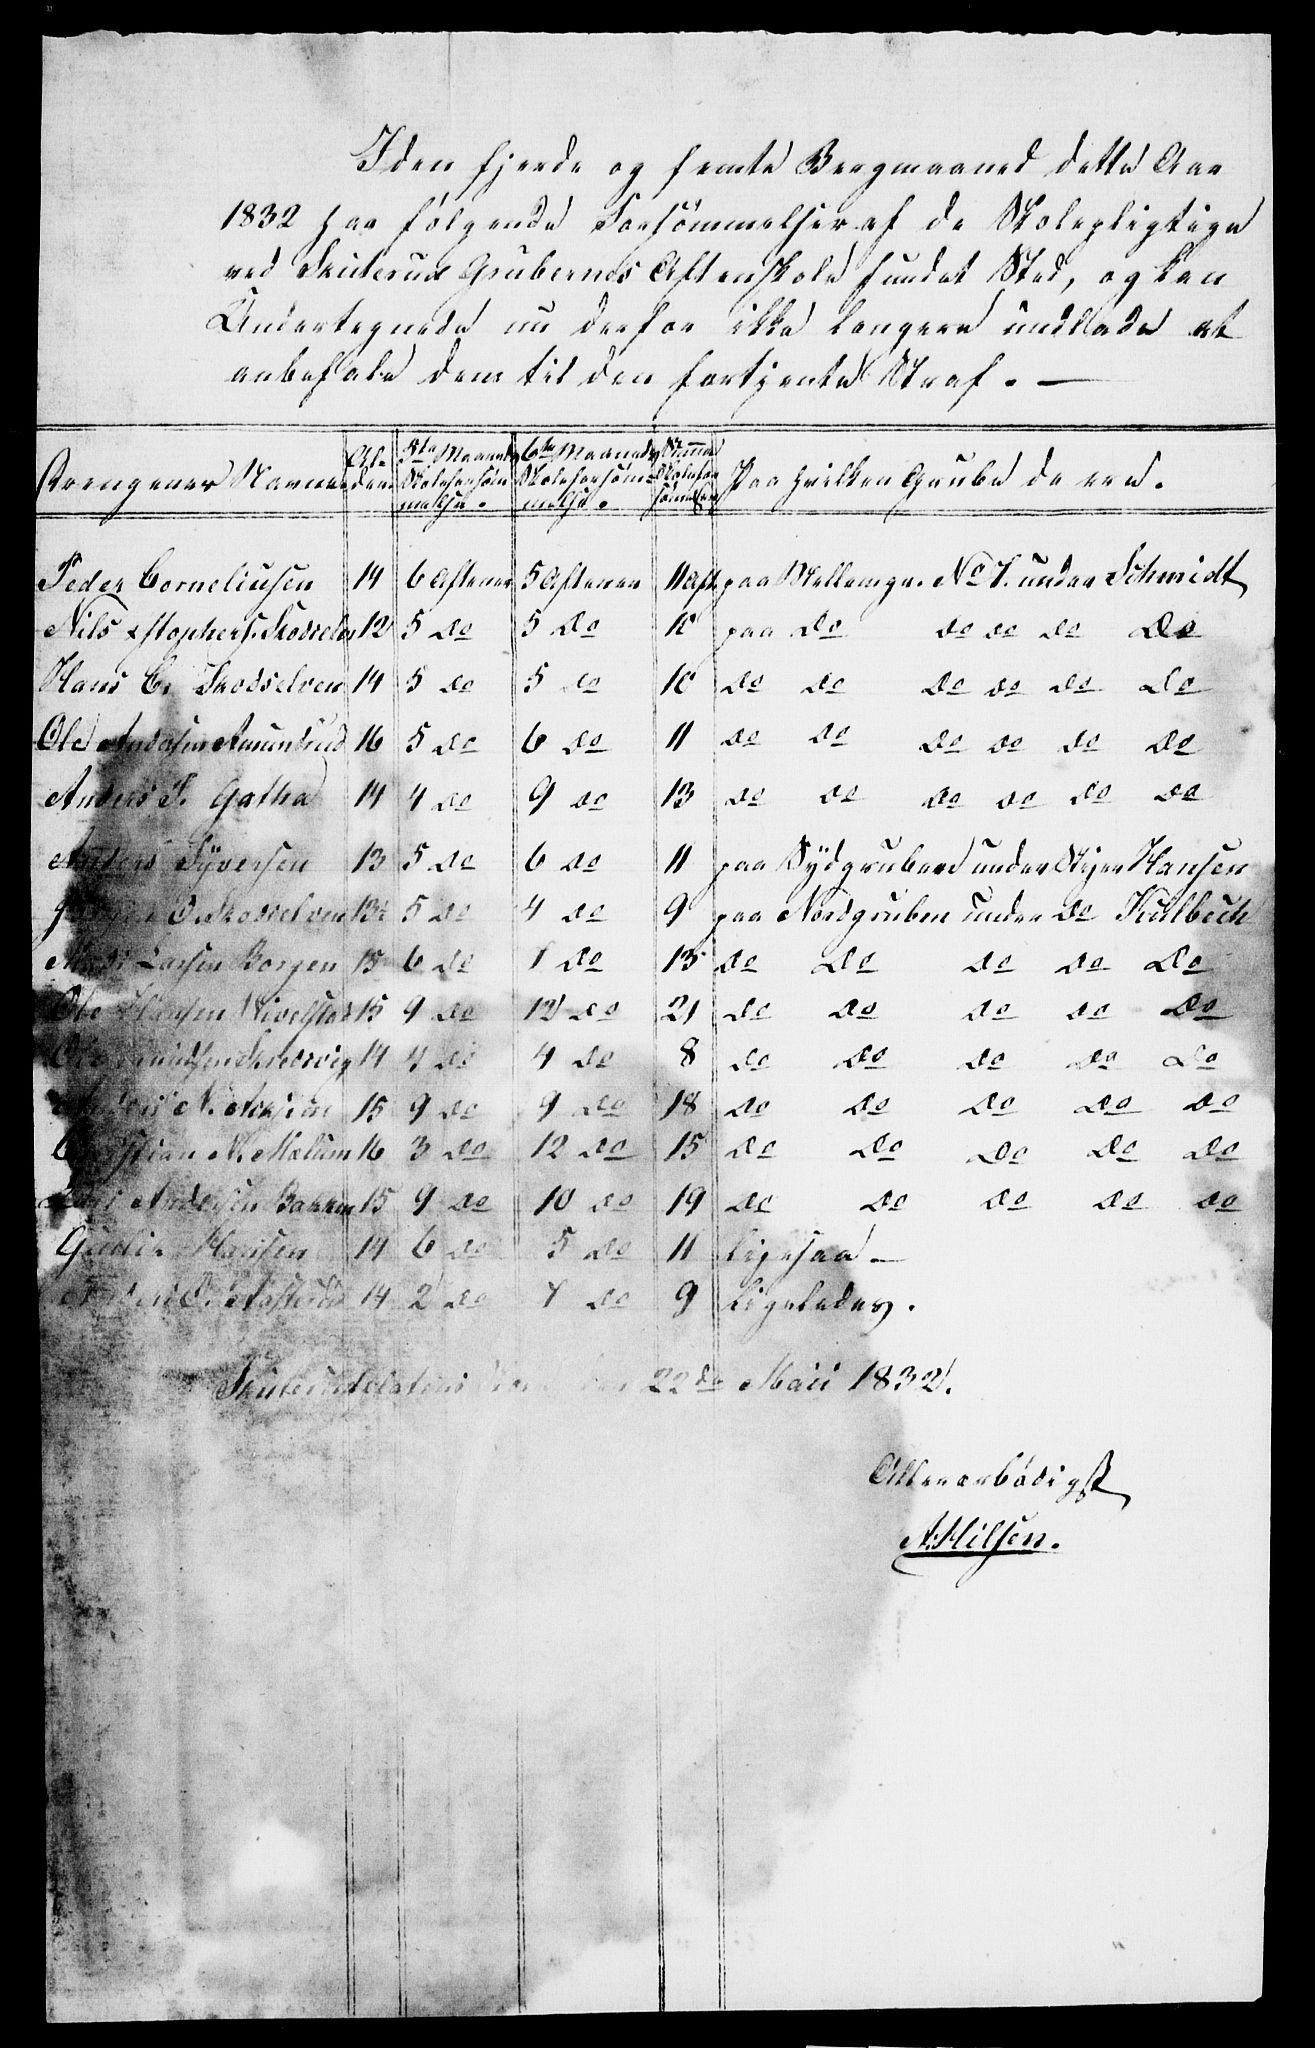 I den fjerde og femte Bergmaaned dette Aar
1832 har følgende Forsömmelser af de Skolepligtige
ved Skuterud Grubernes Aftenskole fundet Sted, og kan
Undertegnede nu derfor ikke længere undlade at
anbefale dem til den fortjente Straf. —
Drengenes Navne Al-deren 5te Maaneds Skoleforsömmelse. 6te Maaneds Skoleforsömmelse. Summa Skoleforsömmelser Paa hvilken Grube de ere.
Peder Corneliusen 14 6 Aftener 5 Aftener 11 Aft. paa Mellemgr. No 1. under Schmidt
Nils Xstophers. Skodselv 12 5 do 5 do 10 paa do do do do do
Hans C. Skodselven 14 5 do 5 do 10 do do do do do do
Ole Andersen Amundrud 16 5 do 6 do 11 do do do do do do
Anders P. Gatha 14 4 do 9 do 13 do do do do do do
Anders Syversen 13 5 do 6 do 11 paa Sydgruben under Stiger Hansen
O. Skodselven 13½ 5 do 4 do 9 paa Nordgruben under do Kulbech
Larsen Borgen 15 6 do 7 do 13 do do do do do
Ole Hansen 15 9 do 12 do 21 do do do do do
Ole 14 4 do 4 do 8 do do do do do
Anders N. 15 9 do 9 do 18 do do do do do
Christian N. Mælum 16 3 do 12 do 15 do do do do do
Andersen Bakken 15 9 do 10 do 19 do do do do do
Hansen 14 6 do 5 do 11 ligesaa —
14 2 do 7 do 9 ligeledes.
den 22de Maii 1832.
Allerærbödigst
A. Nilsen.